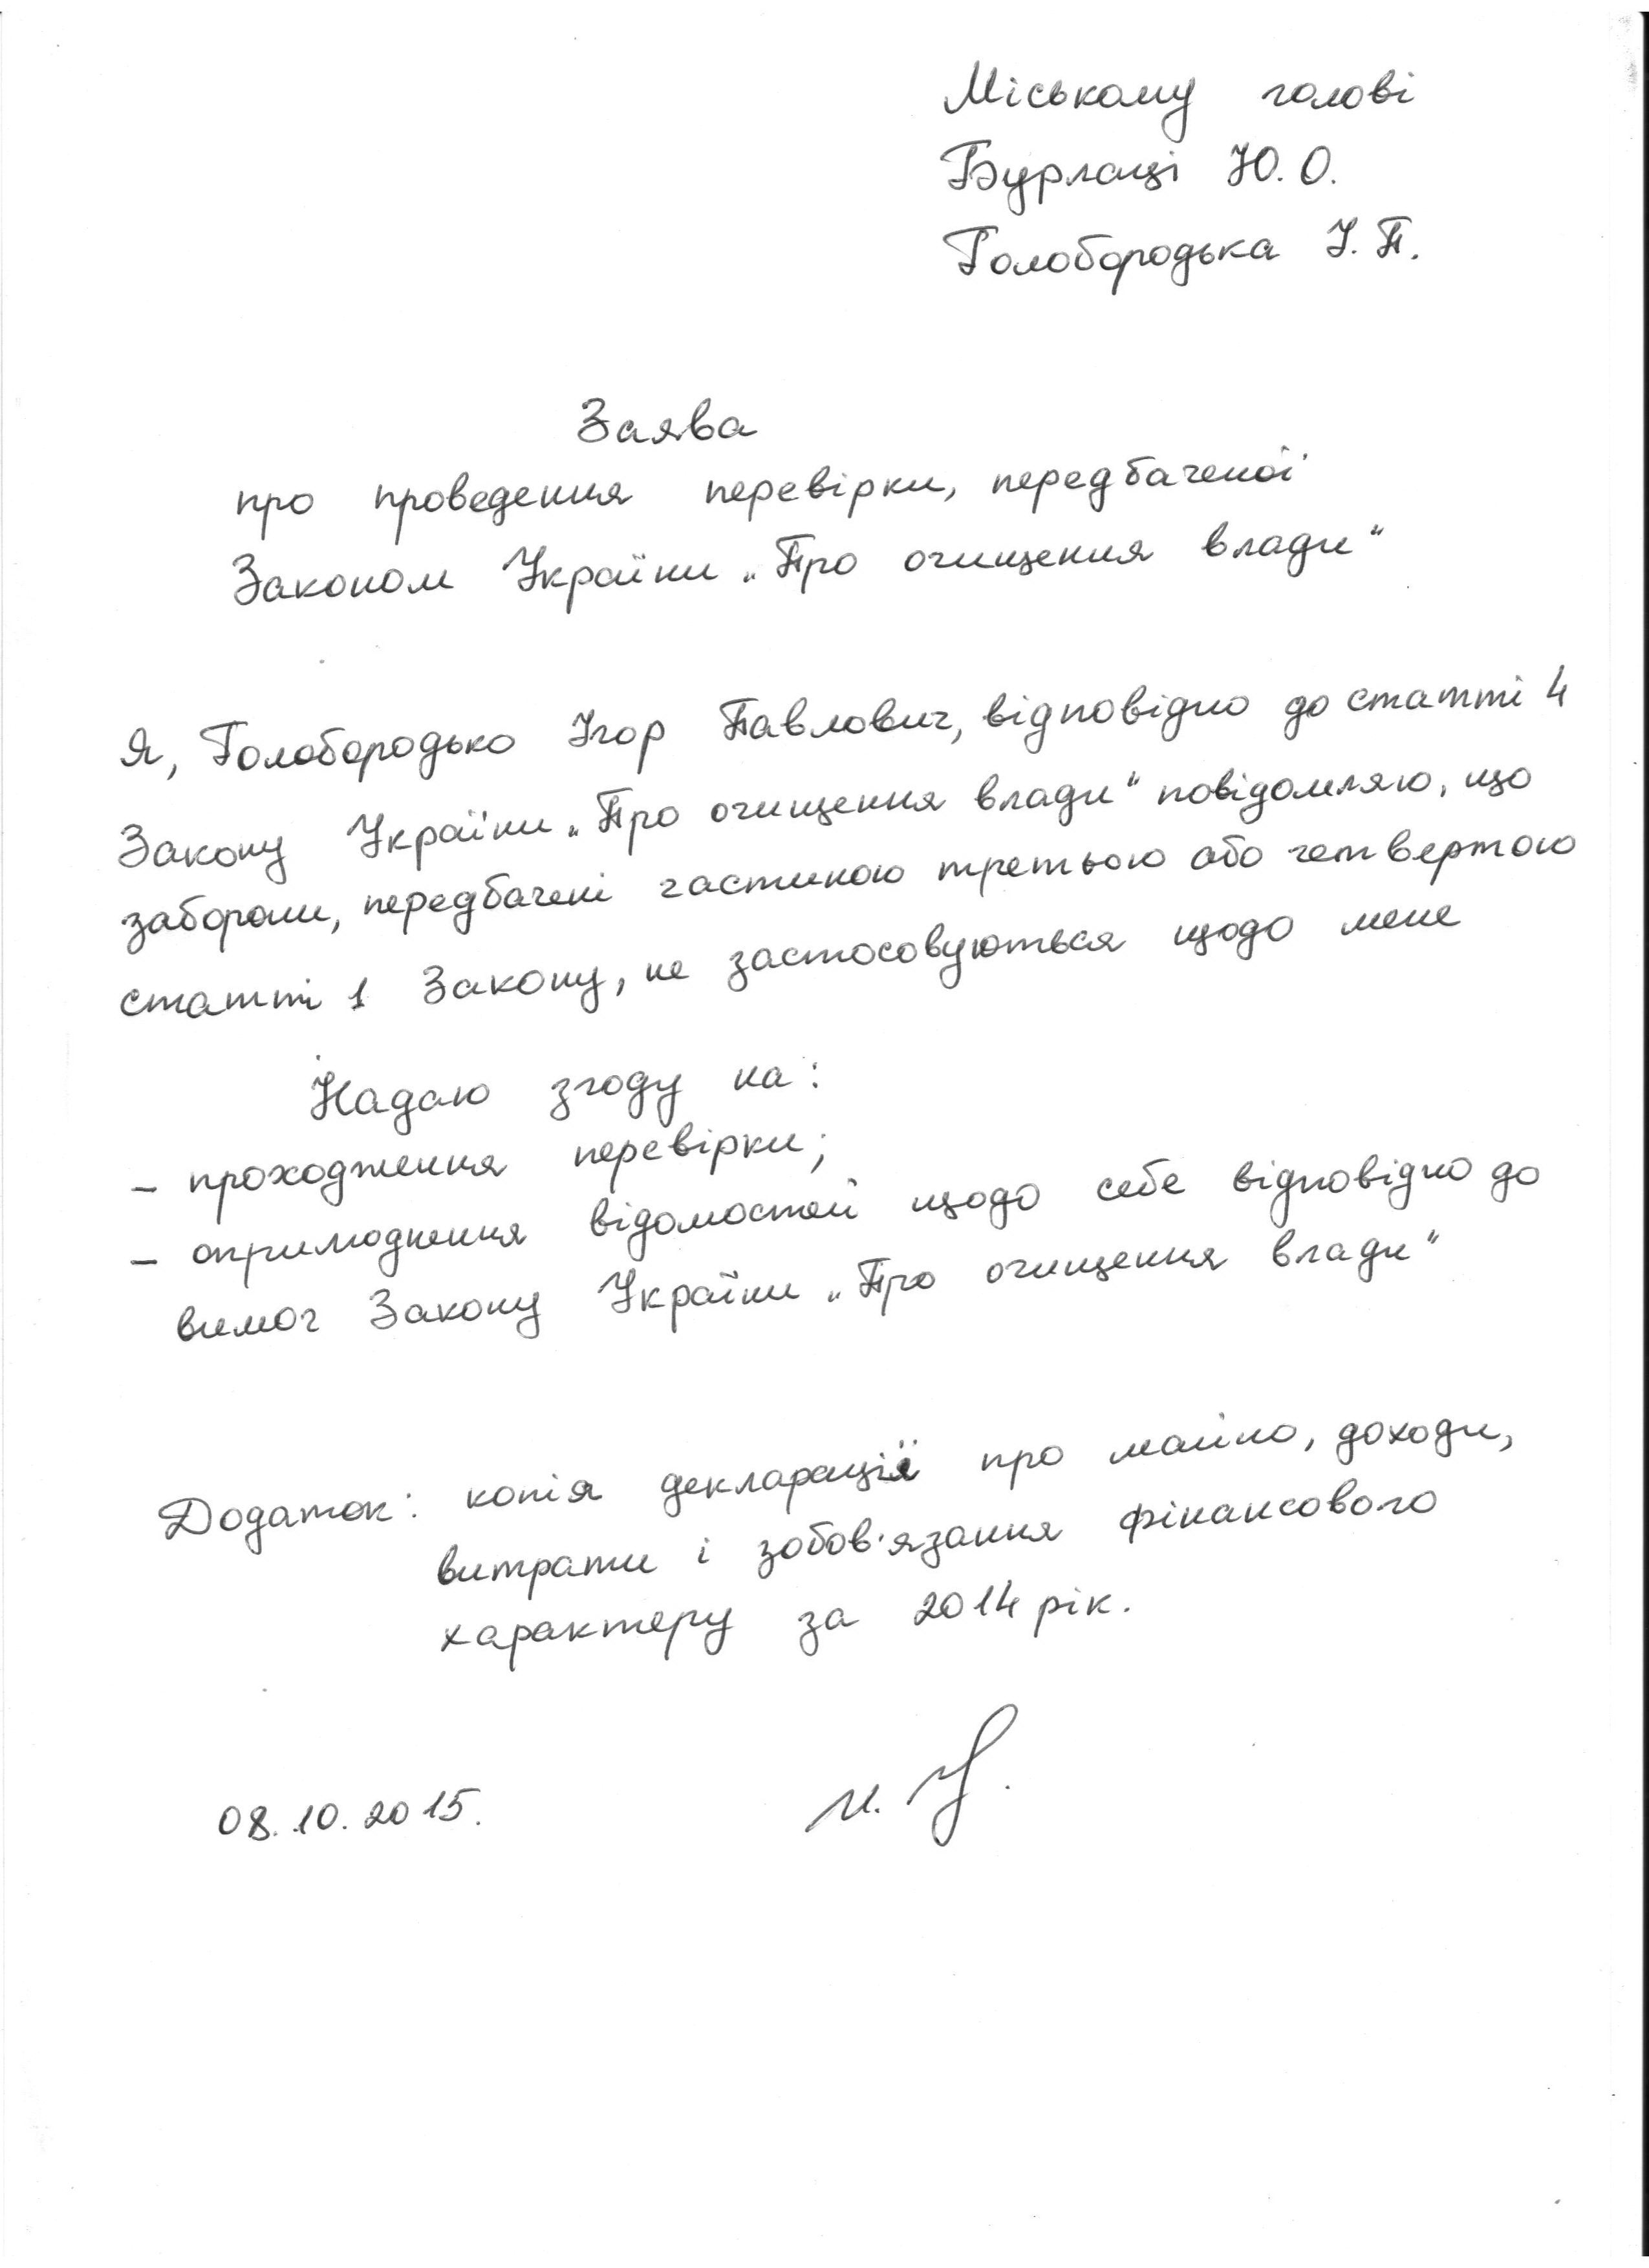 Міському голові
Бурлаці Ю.О.
Голобородька І.П.
Заява
про проведення перевірки, передбаченої
Законом України „Про очищення влади“
Я, Голобородько Ігор Павлович, відповідно до статті 4
Закону України „Про очищення влади“ повідомляю, що
заборони, передбачені частиною третьою або четвертою
статті 1 Закону, не застосовуються щодо мене
Надаю згоду на:
– проходження перевірки;
– оприлюднення відомостей щодо себе відповідно до
вимог Закону України „Про очищення влади“
Додаток: копія декларації про майно, доходи,
витрати і зобов'язання фінансового
характеру за 2014 рік.
08.10.2015.